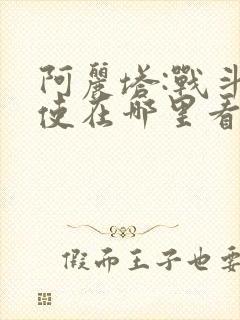 阿麗塔:戰斗
使在哪里看
假而王子也要